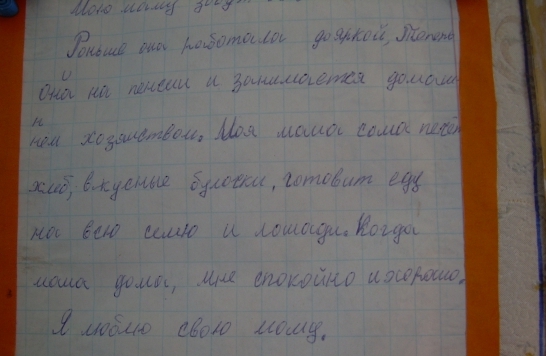 Мою маму зовут
Раньше она работала дояркой, Теперь
она на пенсии и занимается домаш
ним хозяйством. Моя мама сама печёт
хлеб, вкусные булочки, готовит еду
на всю семю и лошади. Когда
мама дома, мне спокойно и хорошо.
Я люблю свою маму.